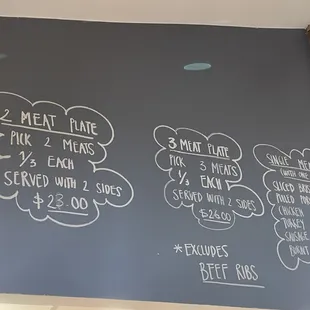 2 MEAT PLATE
PICK 2 MEATS
1/3 EACH
SERVED WITH 2 SIDES
$23.00
3 MEAT PLATE
PICK 3 MEATS
1/3 EACH
SERVED WITH 2 SIDES
$26.00
*EXCLUDES
BEEF RIBS
SINGLE
(WITH
SLICED
PULLED
CHICKEN
TURKEY
SAUSAGE
BURNT